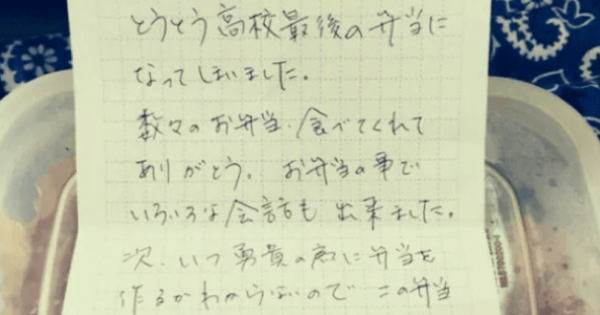 とうとう高校最後の弁当に
なってしまいました。
数々のお弁当、食べてくれて
ありがとう。お弁当の事で
いろいろな会話も出来ました。
次、いつ勇貴の為に弁当を
作るかわからないので この弁当